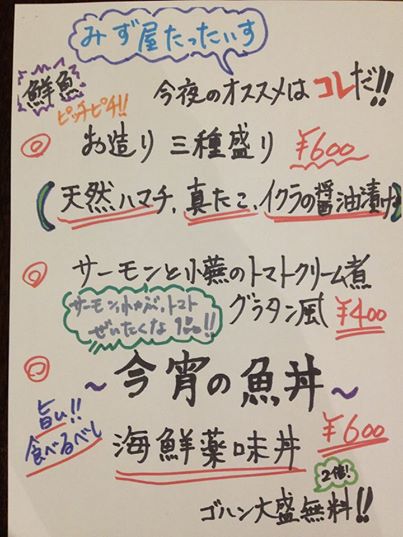 みず屋たったいす
鮮魚
ピッチピチ!!
今夜のオススメはコレだ!!
お造り 三種盛り ¥600
(天然ハマチ、真たこ、イクラの醤油漬け)
サーモンと小蕪のトマトクリーム煮
グラタン風 ¥400
サーモン、小かぶ、トマト
ぜいたくな1品!!
~今宵の魚丼~
旨い!!
食べるべし
海鮮薬味丼 ¥600
2倍!
ゴハン大盛無料!!